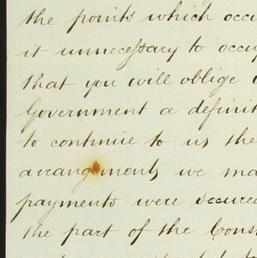 the points which occu
it unnecessary to occup
that you will oblige
Government a definit
to continue to us the
arrangements we ma
payments were secured
the part of the Cons